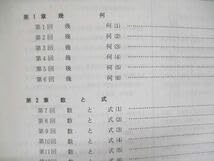 第1章 幾 何
第1回 幾 何(1)
第2回 幾 何(2)
第3回 幾 何(3)
第4回 幾 何(4)
第5回 幾 何(5)
第6回 幾 何(6)
第2章 数 と 式
第7回 数 と 式(1)
第8回 数 と 式(2)
第9回 数 と 式(3)
第10回 数 と 式(4)
第11回 数 と 式(5)